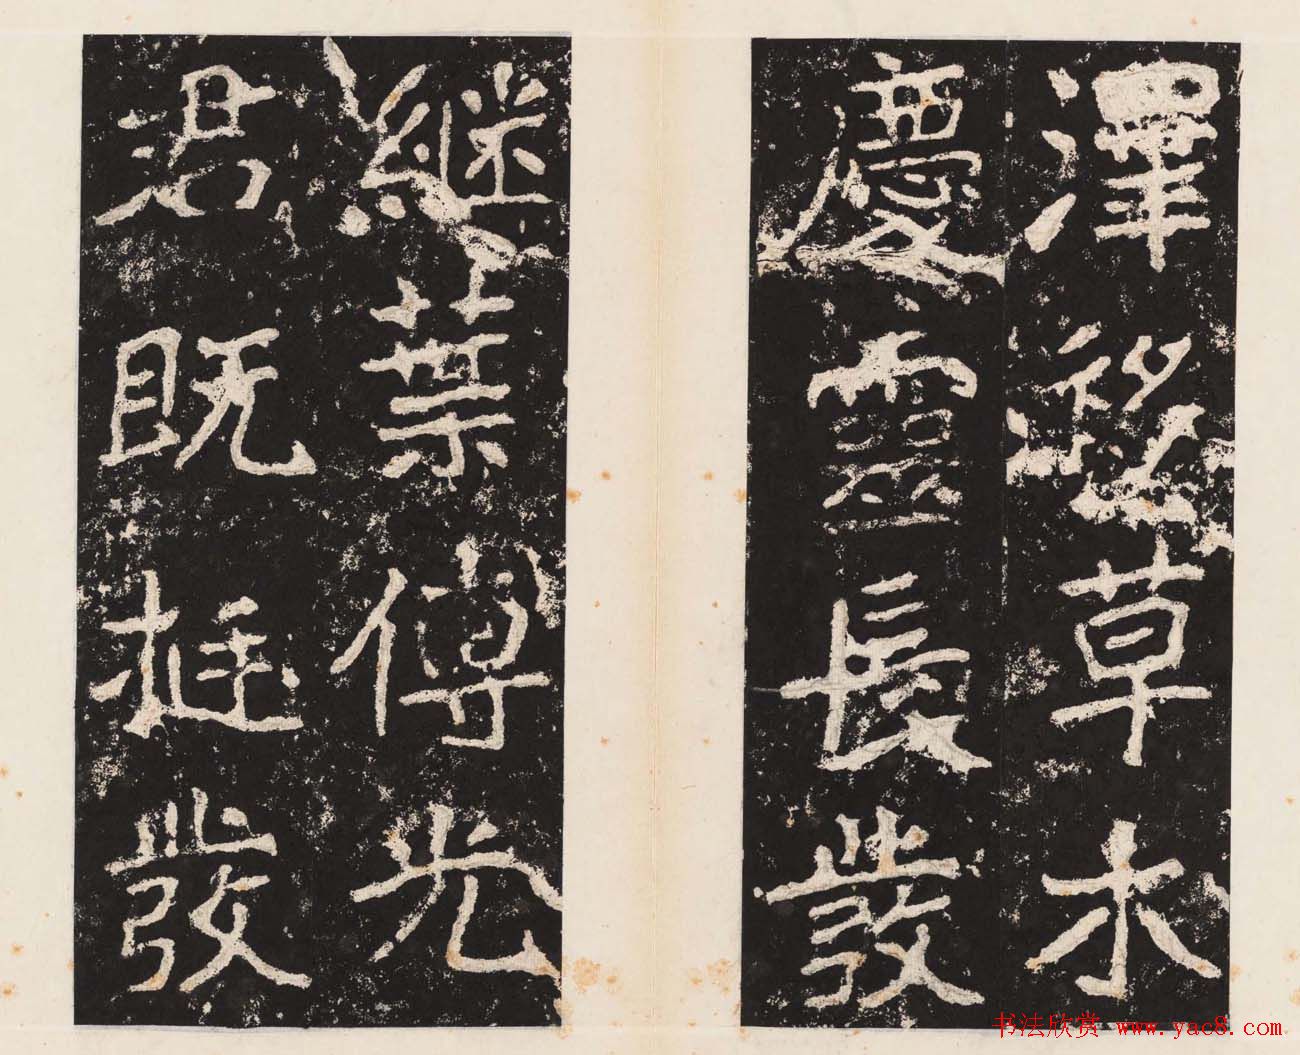 澤草木
慶靈長發
継葉傳光
君既挺發
书法欣赏 www.yac8.com